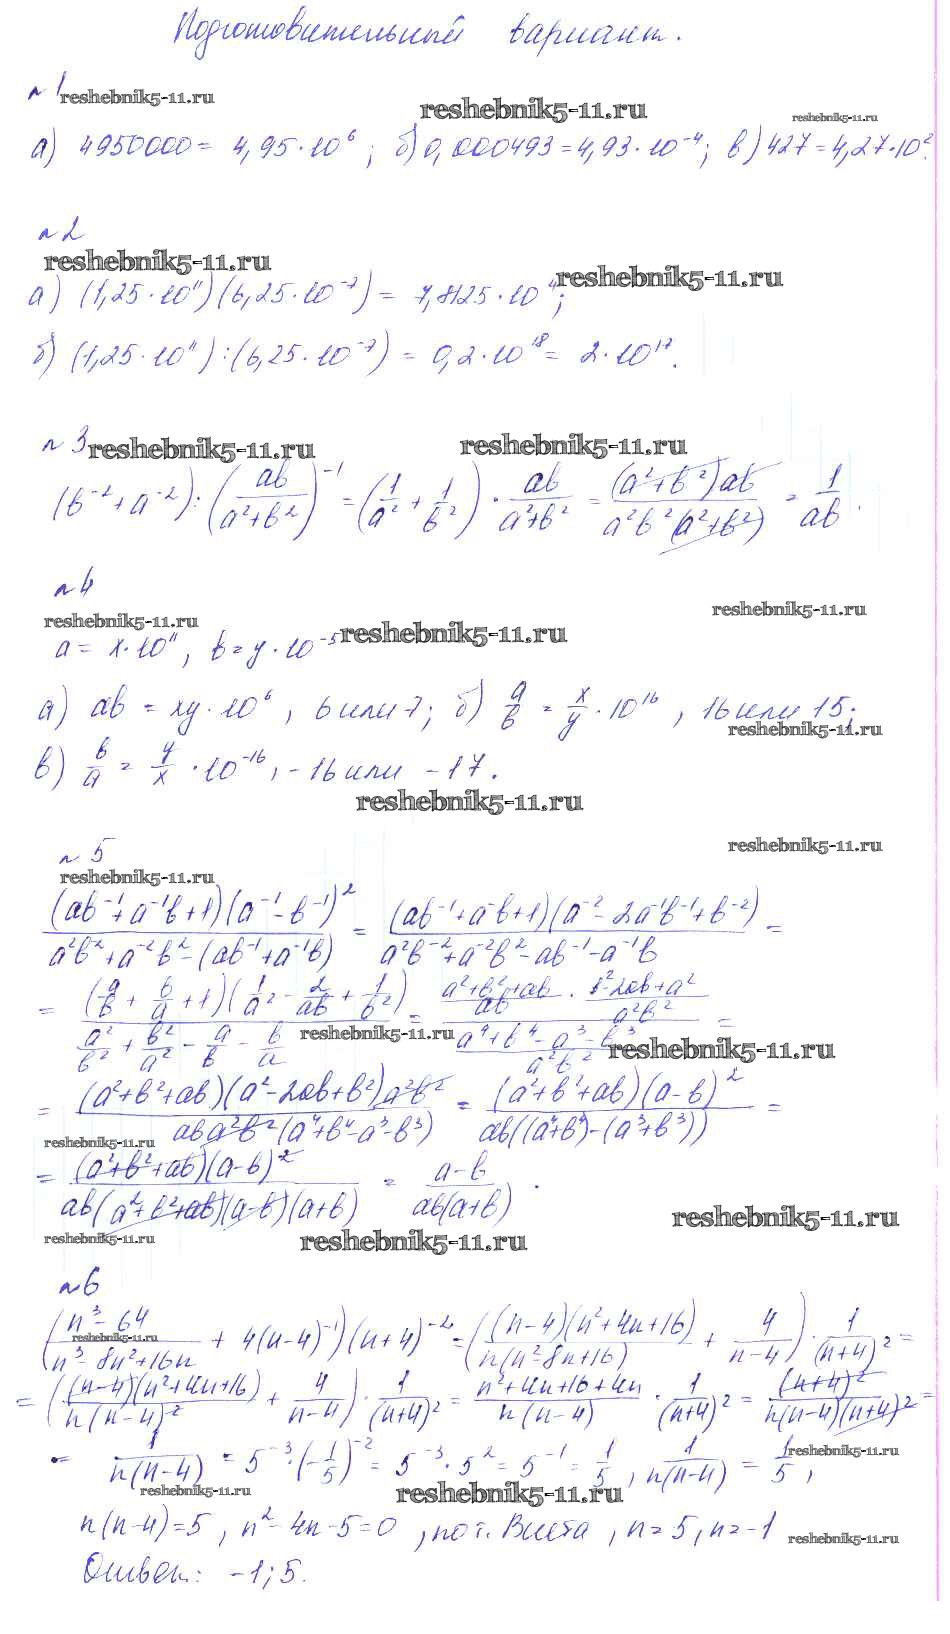 Подготовительный вариант.
№1
reshebnik5-11.ru reshebnik5-11.ru reshebnik5-11.ru
а) 4950000 = 4,95·10⁶; б) 0,000493 = 4,93·10⁻⁴; в) 427 = 4,27·10².
№2
reshebnik5-11.ru reshebnik5-11.ru
а) (1,25·10¹¹)(6,25·10⁻⁷) = 7,8125·10⁴;
б) (1,25·10¹¹):(6,25·10⁻⁷) = 0,2·10¹⁸ = 2·10¹⁷.
№3 reshebnik5-11.ru reshebnik5-11.ru
(b⁻²+a⁻²):(ab/(a²+b²))⁻¹ = (1/a² + 1/b²)·ab/(a²+b²) = (a²+b²)ab/(a²b²(a²+b²)) = 1/ab.
№4
reshebnik5-11.ru reshebnik5-11.ru reshebnik5-11.ru
a = x·10¹¹, b = y·10⁻⁵
а) ab = xy·10⁶, 6 или 7; б) a/b = x/y·10¹⁶, 16 или 15;
reshebnik5-11.ru
в) b/a = y/x·10⁻¹⁶, -16 или -17.
reshebnik5-11.ru
№5 reshebnik5-11.ru
reshebnik5-11.ru
(ab⁻¹+a⁻¹b+1)(a⁻¹-b⁻¹)²/(a²b⁻²+a⁻²b²-(ab⁻¹+a⁻¹b)) = (ab⁻¹+a⁻b+1)(a⁻²-2a⁻¹b⁻¹+b⁻²)/(a²b⁻²+a⁻²b²-ab⁻¹-a⁻¹b) =
= (a/b + b/a + 1)(1/a² - 2/ab + 1/b²)/(a²/b² + b²/a² - a/b - b/a) = ((a²+b²+ab)/ab · (b²-2ab+a²)/a²b²)/((a⁴+b⁴-a³-b³)/a²b²) =
reshebnik5-11.ru reshebnik5-11.ru
= (a²+b²+ab)(a²-2ab+b²)a²b²/(ab a²b²(a⁴+b⁴-a³-b³)) = (a²+b²+ab)(a-b)²/(ab((a⁴+b⁴)-(a³+b³))) =
reshebnik5-11.ru
= (a²+b²+ab)(a-b)²/(ab(a²+b²+ab)(a-b)(a+b)) = (a-b)/(ab(a+b)).
reshebnik5-11.ru reshebnik5-11.ru reshebnik5-11.ru
№6
((n³-64)/(n³-8n²+16n) + 4(n-4)⁻¹)(n+4)⁻² = ((n-4)(n²+4n+16)/(n(n²-8n+16)) + 4/(n-4))·1/(n+4)² =
reshebnik5-11.ru
= ((n-4)(n²+4n+16)/(n(n-4)²) + 4/(n-4))·1/(n+4)² = (n²+4n+16+4n)/(n(n-4))·1/(n+4)² = (n+4)²/(n(n-4)(n+4)²) =
= 1/(n(n-4)) = 5⁻³·(-1/5)⁻² = 5⁻³·5² = 5⁻¹ = 1/5, 1/(n(n-4)) = 1/5,
reshebnik5-11.ru reshebnik5-11.ru reshebnik5-11.ru
n(n-4)=5, n²-4n-5=0, по т. Виета, n=5, n=-1
reshebnik5-11.ru
Ответ: -1; 5.